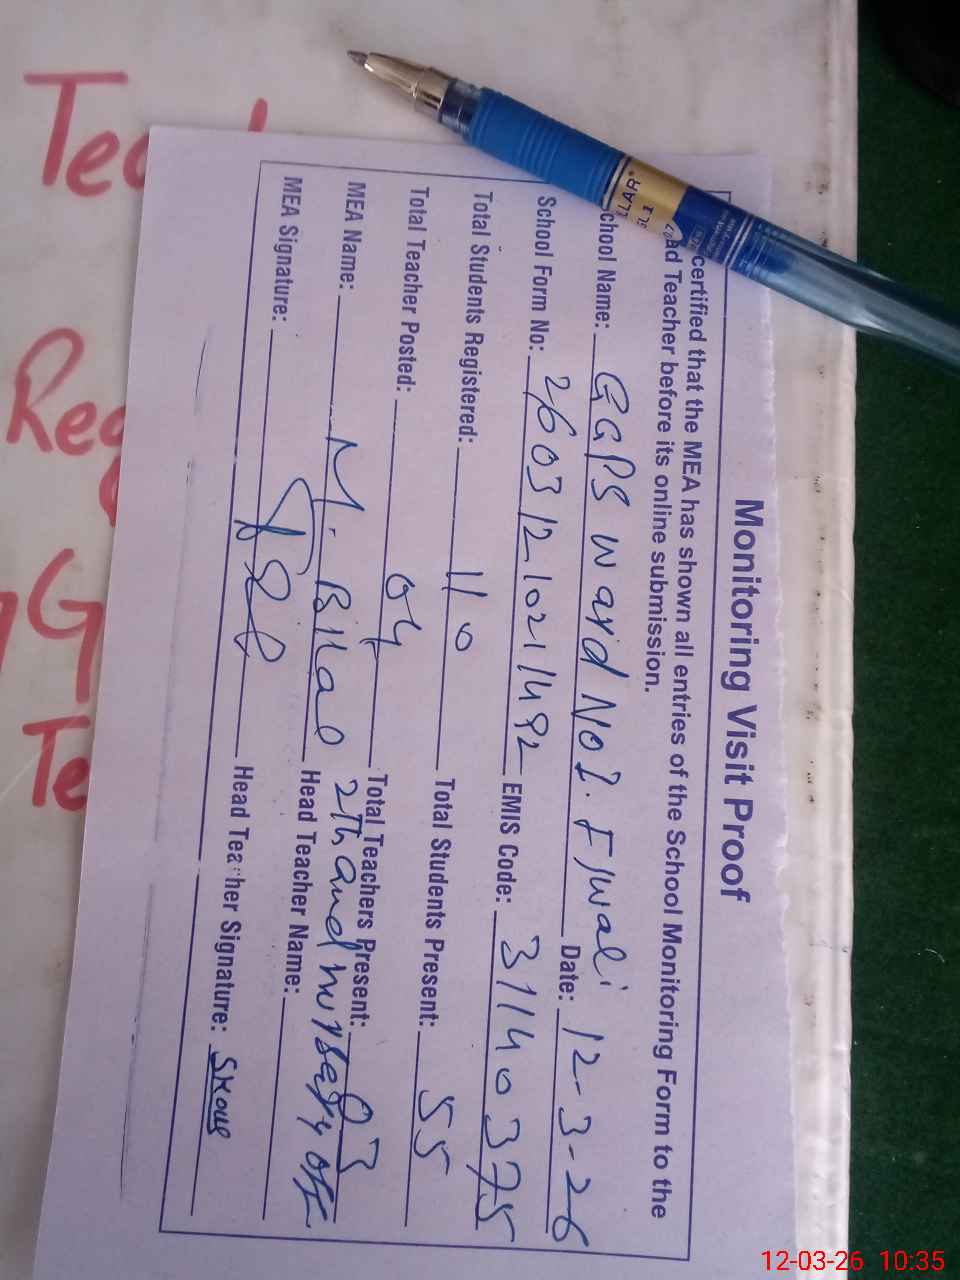 Monitoring Visit Proof
certified that the MEA has shown all entries of the School Monitoring Form to the
ad Teacher before its online submission.
chool Name: GGPS ward No 2. Date: 12-3-26
School Form No: 2603121021492 EMIS Code: 31140375
Total Students Registered: 110 Total Students Present: 55
Total Teacher Posted: 04 Total Teachers Present: 03
MEA Name: M. Bilal Head Teacher Name:
2Th and nursery off
MEA Signature: Head Teacher Signature:
Te
Re
G
Te
12-03-26 10:35